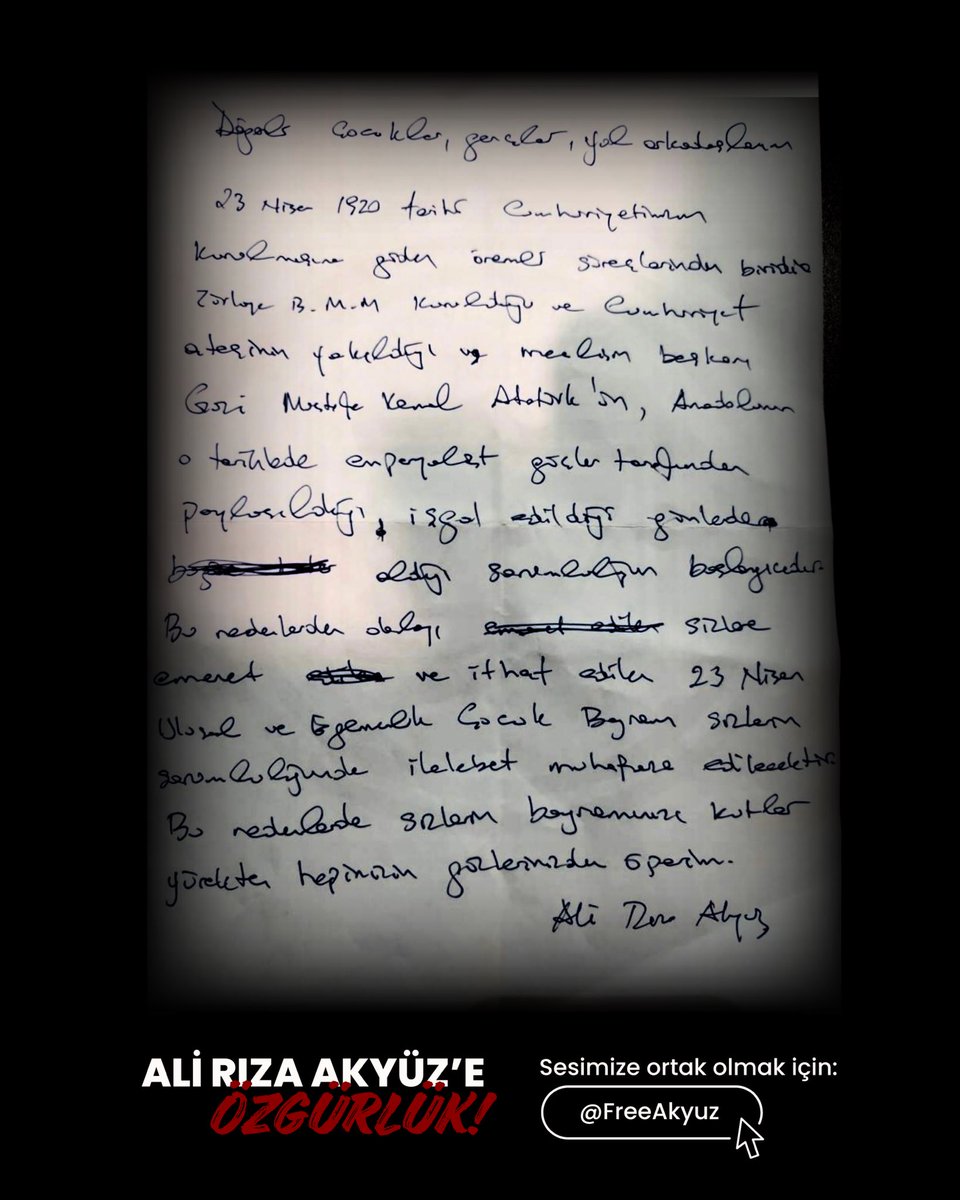 Değerli Çocuklar, gençler, yol arkadaşlarım
23 Nisan 1920 tarihi Cumhuriyetimizin
kurulmasına giden önemli süreçlerinden biridir
Türkiye B.M.M kurulduğu ve Cumhuriyet
ateşinin yakıldığı ve meclisin başkanı
Gazi Mustafa Kemal Atatürk'ün, Anadolunun
o tarihlerde emperyalist güçler tarafından
paylaşıldığı, işgal edildiği günlerde
aldığı sorumluluğun başlangıcıdır.
Bu nedenlerden dolayı emanet edilen sizlere
emanet edilen ve ithaf edilen 23 Nisan
Ulusal ve Egemenlik Çocuk Bayramı sizlerin
sorumluluğunda ilelebet muhafaza edilecektir.
Bu nedenlerde sizlerin bayramınızı kutlar
yürekten hepinizin gözlerinizden öperim.
Ali Rıza Akyüz
ALİ RIZA AKYÜZ'E
ÖZGÜRLÜK!
Sesimize ortak olmak için:
@FreeAkyuz